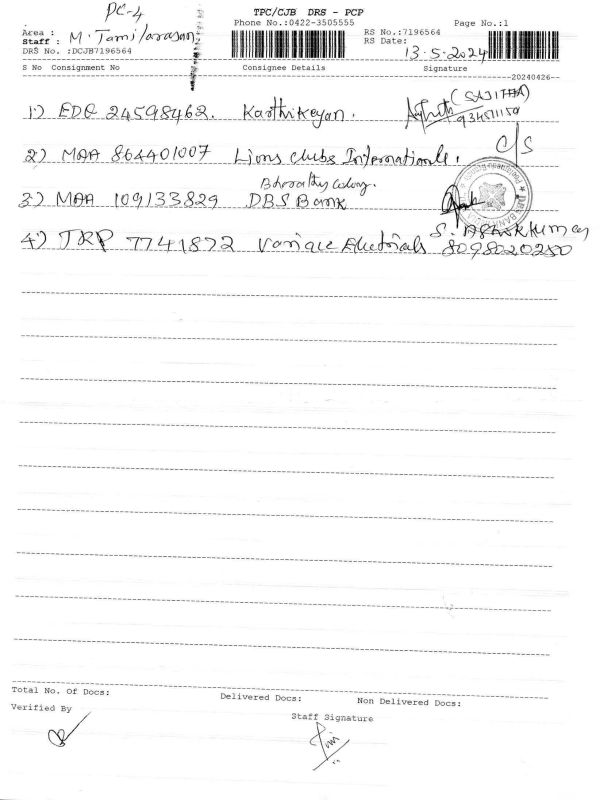 PC-4
TPC/CJB DRS - PCP
Phone No.:0422-3505555
Page No.:1
Area :
RS No.:7196564
Staff : M. Tamilarasan
RS Date: 13.5.2024
DRS No. :DCJB7196564
S No Consignment No Consignee Details Signature
20240426
1) EDQ 24598462. Karthikeyan. (SAJITHA)
2) MAA 864401007 Lions Clubs Internationale. C/S
Bharathy colony.
3) MAA 109133829 DBS Bank
S. Ashokkumar
4) TRP 7741872 Varique Alectricals 8098020250
Total No. Of Docs: Delivered Docs: Non Delivered Docs:
Verified By
Staff Signature